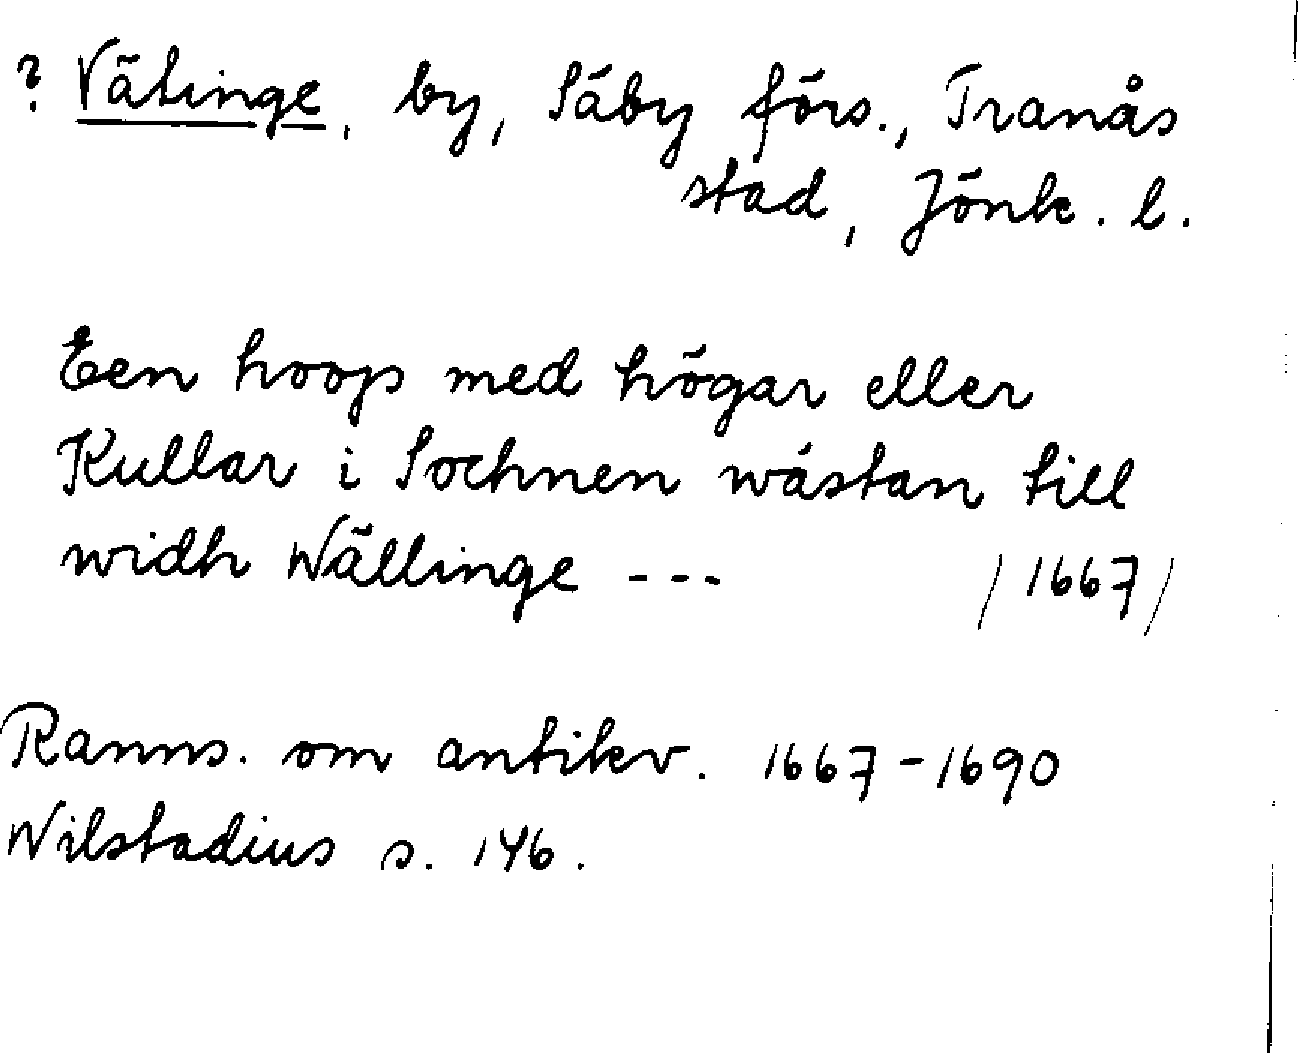 ? Välinge, by, Säby förs., Tranås
stad, Jönk. l.
Een hoop med högar eller
Kullar i Sochnen wästan till
widh Wällinge --- /1667/
Ranns. om antikv. 1667-1690
Wilstadius s. 146.